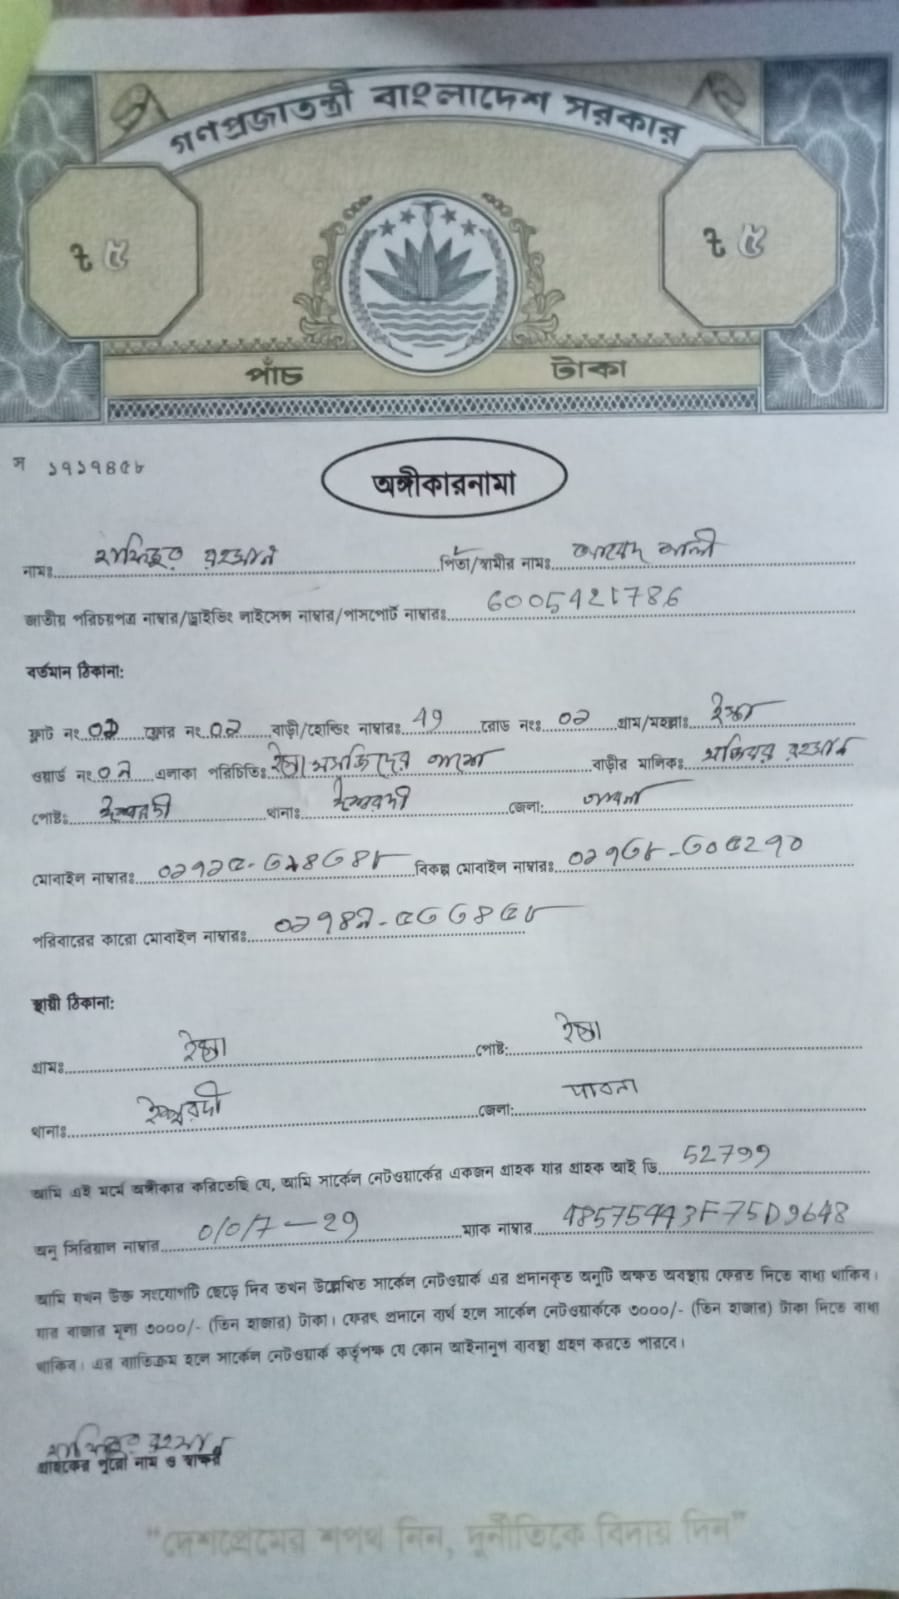 গণপ্রজাতন্ত্রী বাংলাদেশ সরকার
৳ ৫ ৳ ৫
পাঁচ টাকা
স ১৭১৭৪৫৮
অঙ্গীকারনামা
নামঃ রহমান পিতা/স্বামীর নামঃ আলী
জাতীয় পরিচয়পত্র নাম্বার/ড্রাইভিং লাইসেন্স নাম্বার/পাসপোর্ট নাম্বারঃ 6005421786
বর্তমান ঠিকানা:
ফ্লাট নং ০২ ফ্লোর নং ০২ বাড়ী/হোল্ডিং নাম্বারঃ 49 রোড নংঃ ০২ গ্রাম/মহল্লাঃ
ওয়ার্ড নং এলাকা পরিচিতিঃ মসজিদের পাশে বাড়ীর মালিকঃ রহমান
পোষ্টঃ ঈশ্বরদী থানাঃ ঈশ্বরদী জেলা: পাবনা
মোবাইল নাম্বারঃ বিকল্প মোবাইল নাম্বারঃ
পরিবারের কারো মোবাইল নাম্বারঃ
স্থায়ী ঠিকানা:
গ্রামঃ পোষ্ট:
থানাঃ ঈশ্বরদী জেলা: পাবনা
আমি এই মর্মে অঙ্গীকার করিতেছি যে, আমি সার্কেল নেটওয়ার্কের একজন গ্রাহক যার গ্রাহক আই ডি 52799
অনু সিরিয়াল নাম্বার 0/0/7 – 29 ম্যাক নাম্বার 48575443F75D9648
আমি যখন উক্ত সংযোগটি ছেড়ে দিব তখন উল্লেখিত সার্কেল নেটওয়ার্ক এর প্রদানকৃত অনুটি অক্ষত অবস্থায় ফেরত দিতে বাধ্য থাকিব।
যার বাজার মূল্য ৩০০০/- (তিন হাজার) টাকা। ফেরৎ প্রদানে ব্যর্থ হলে সার্কেল নেটওয়ার্ককে ৩০০০/- (তিন হাজার) টাকা দিতে বাধ্য
থাকিব। এর ব্যতিক্রম হলে সার্কেল নেটওয়ার্ক কর্তৃপক্ষ যে কোন আইনানুগ ব্যবস্থা গ্রহণ করতে পারবে।
রহমান
গ্রাহকের পুরো নাম ও স্বাক্ষর
"দেশপ্রেমের শপথ নিন, দুর্নীতিকে বিদায় দিন"